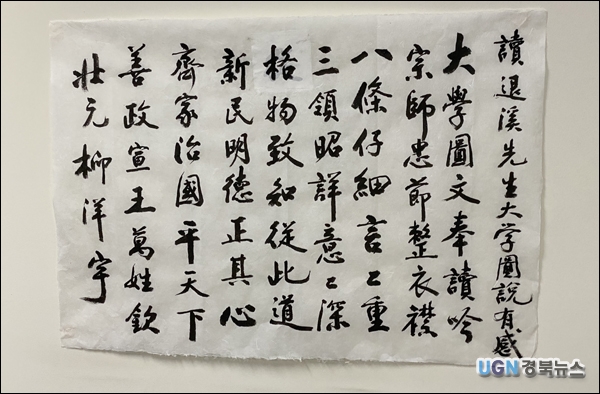 讀退溪先生大学圖說有感
大學圖文奉讀吟
宗師忠節整衣襟
八條仔細言〻重
三領昭詳意〻深
格物致知從此道
新民明德正其心
齊家治國平天下
善政宣王萬姓欽
壯元 柳洋宇
UGN경북뉴스